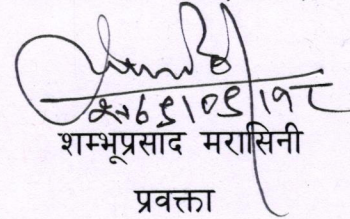 २०७९।०९।१८
शम्भूप्रसाद मरासिनी
प्रवक्ता